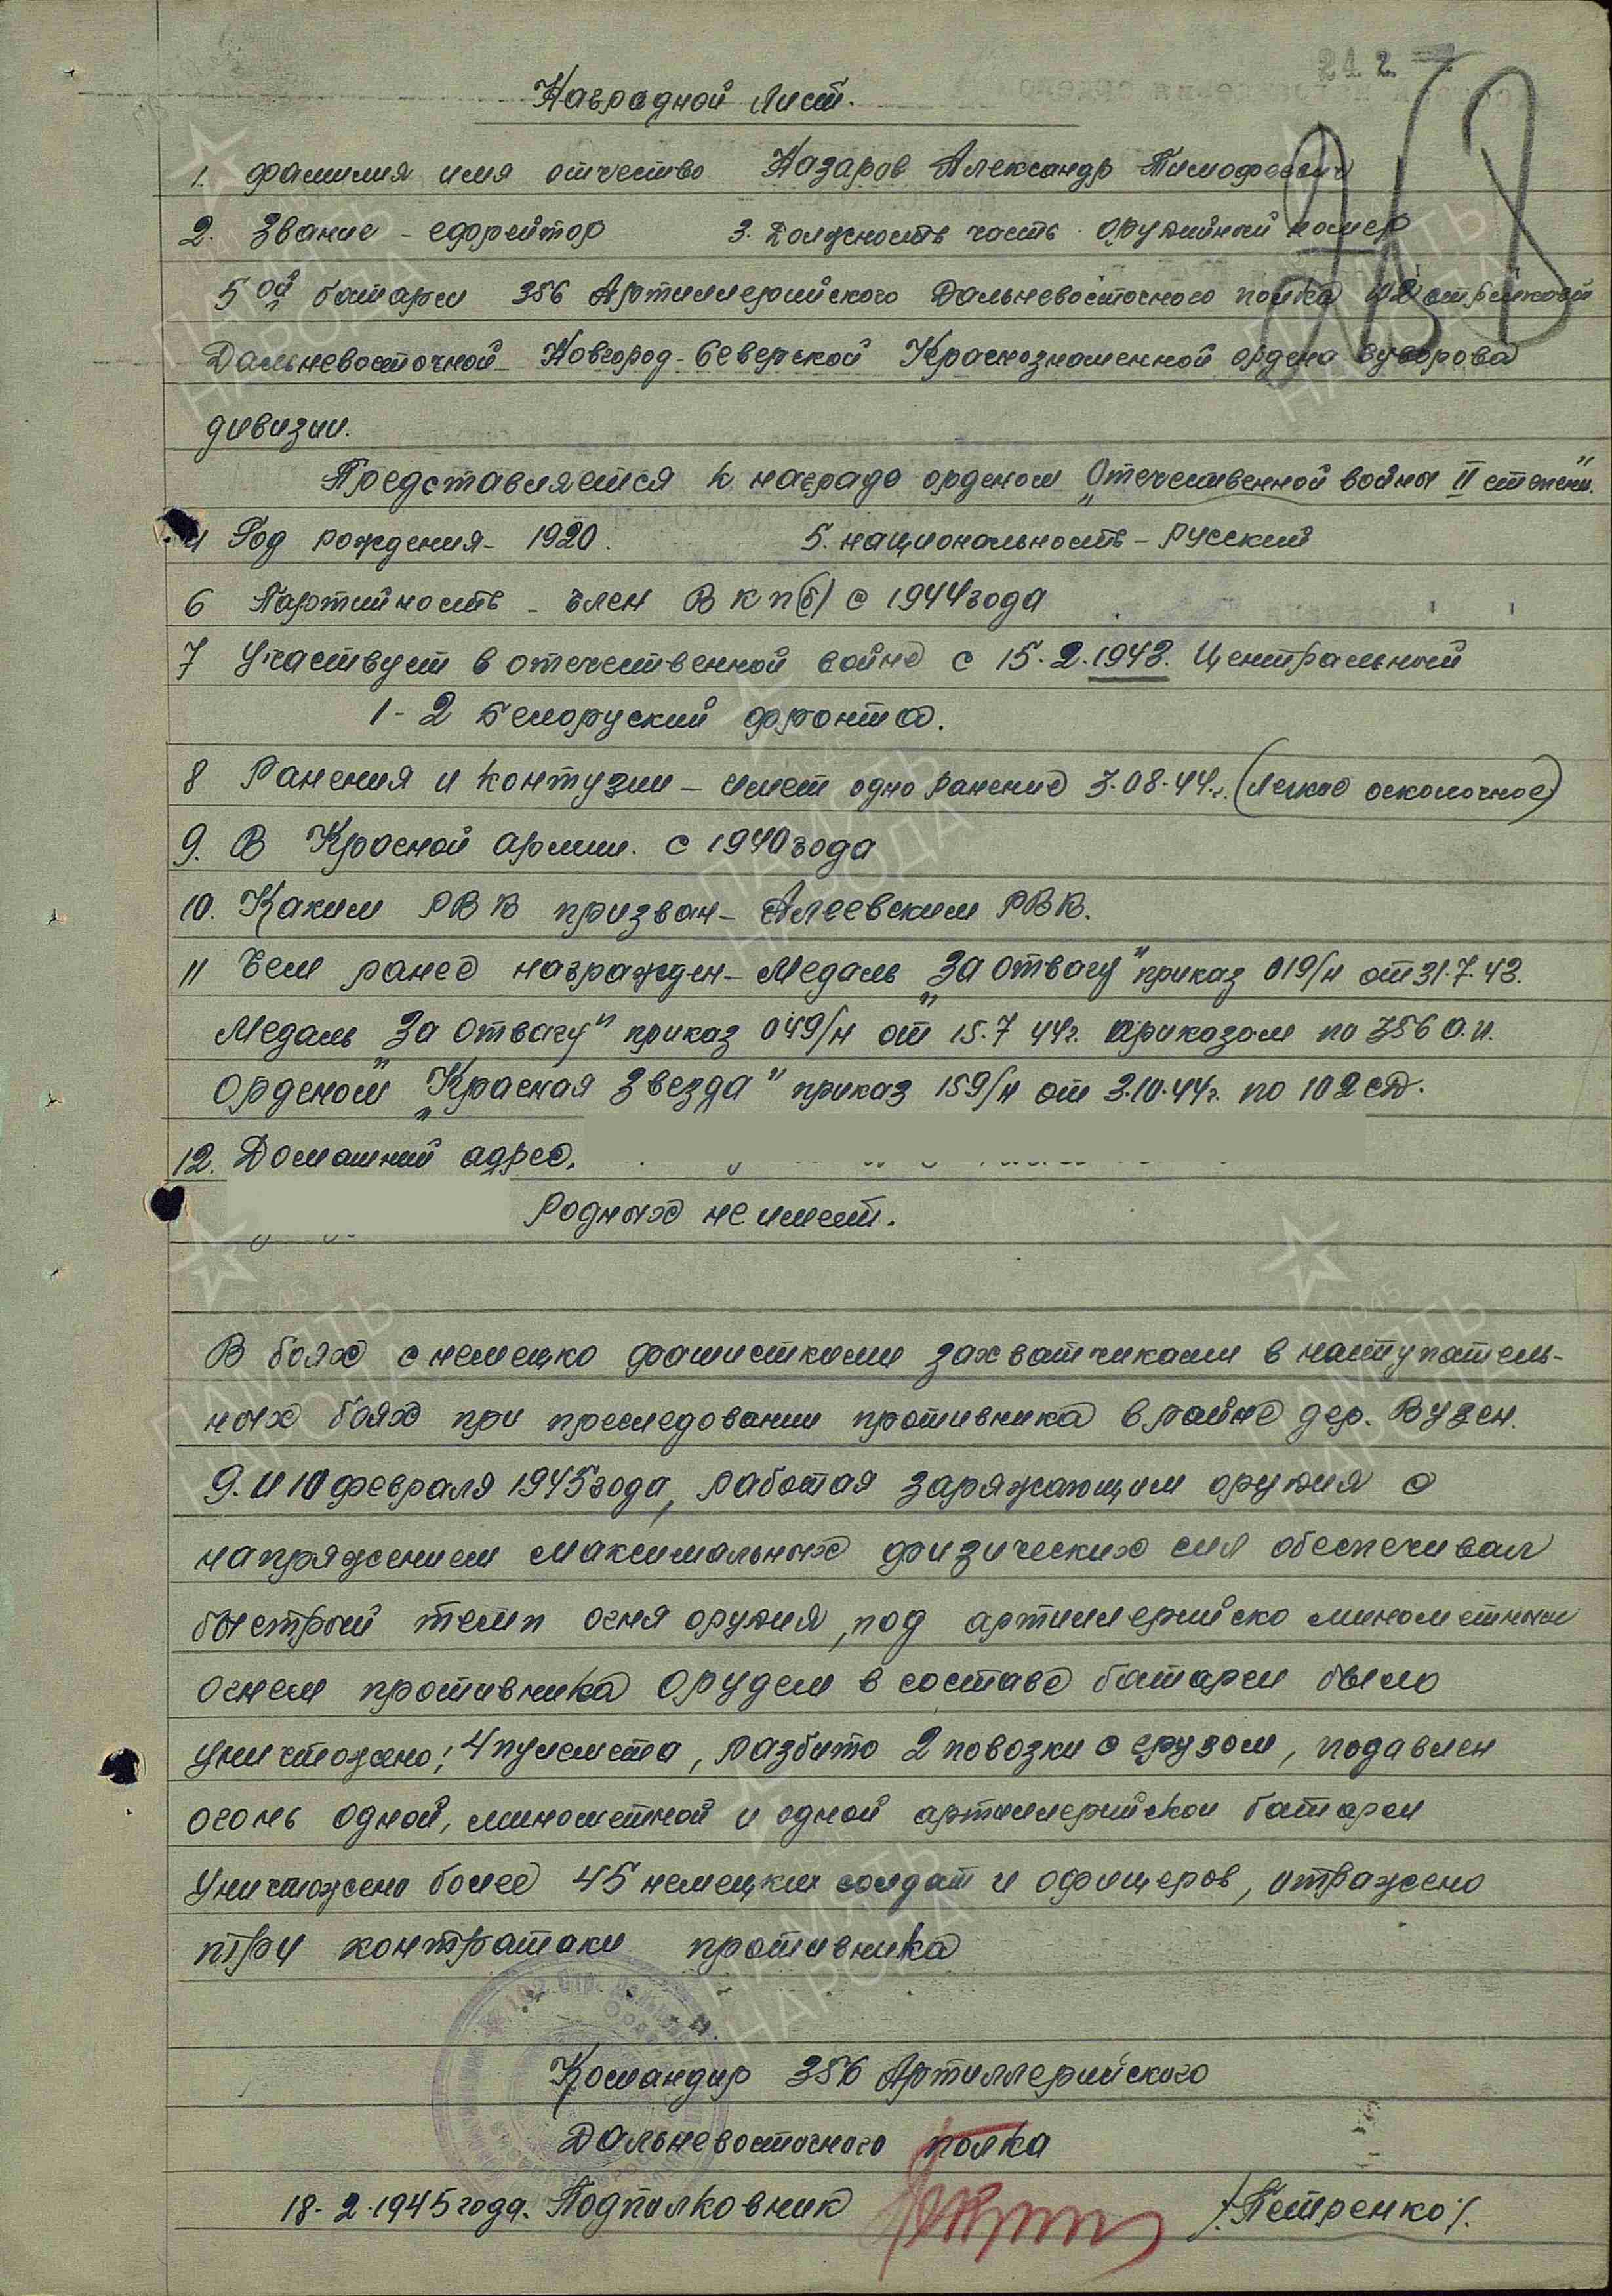 Наградной лист.
1. фамилия имя отчество Назаров Александр Тимофеевич
2. Звание - ефрейтор 3. Должность часть орудийный номер
5ой батареи 356 Артиллерийского Дальневосточного полка 102 стрелковой
Дальневосточной Новгород-Северской Краснознаменной ордена Суворова
дивизии.
Представляется к награде орденом „Отечественной войны II степени".
4 Год рождения - 1920. 5. национальность - русский
6 Партийность - член ВКП(б) с 1944 года
7 Участвует в отечественной войне с 15.2.1943. Центральный
1-2 Белоруский фронта.
8 Ранения и контузии - имеет одно ранение 3.08.44г. (легкое осколочное)
9. В Красной армии. с 1940 года
10. Каким РВК призван - Алеевским РВК.
11 Чем ранее награжден - Медаль „За отвагу" приказ 019/н от 31.7.43.
Медаль „За отвагу" приказ 049/н от 15.7 44г. приказом по 356 а.п.
Орденом „Красная Звезда" приказ 159/н от 3.10.44г. по 102 сд.
12. Домашний адрес.
Родных не имеет.
В боях с немецко фашисткими захватчиками в наступатель-
ных боях при преследовании противника в районе дер. Вузен.
9. и 10 февраля 1945 года, работая заряжающим орудия с
напряжением максимальных физических сил обеспечивал
быстрый темп огня орудия, под артиллерийско минометным
огнем противника орудем в составе батареи было
уничтожено; 4 пулемета, разбито 2 повозки с грузом, подавлен
огонь одной, минометной и одной артиллерийской батареи
Уничтожено более 45 немецких солдат и офицеров, отражено
три контратаки противника
Командир 356 Артиллерийского
Дальневосточного полка
18.2.1945 года. Подполковник /.Петренко/.
ПАМЯТЬ
НАРОДА